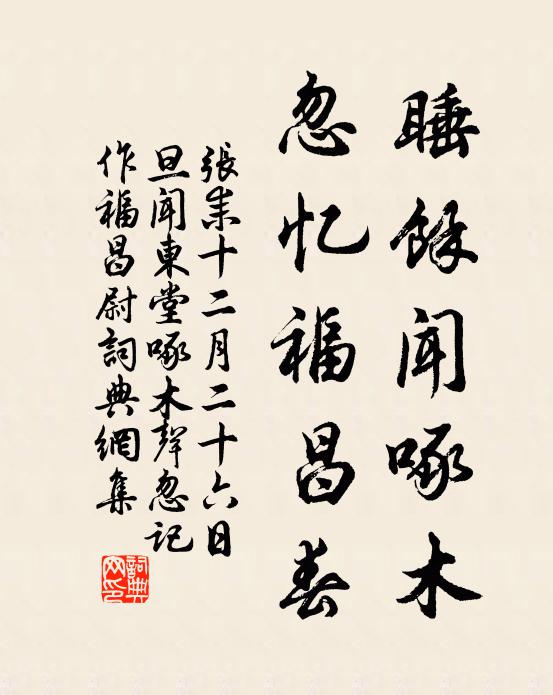 睡餘闻啄木
忽忆福昌春
張耒十二月二十六日
旦闻東堂啄木聲忽记
作福昌尉詞典網集
詞典
网印